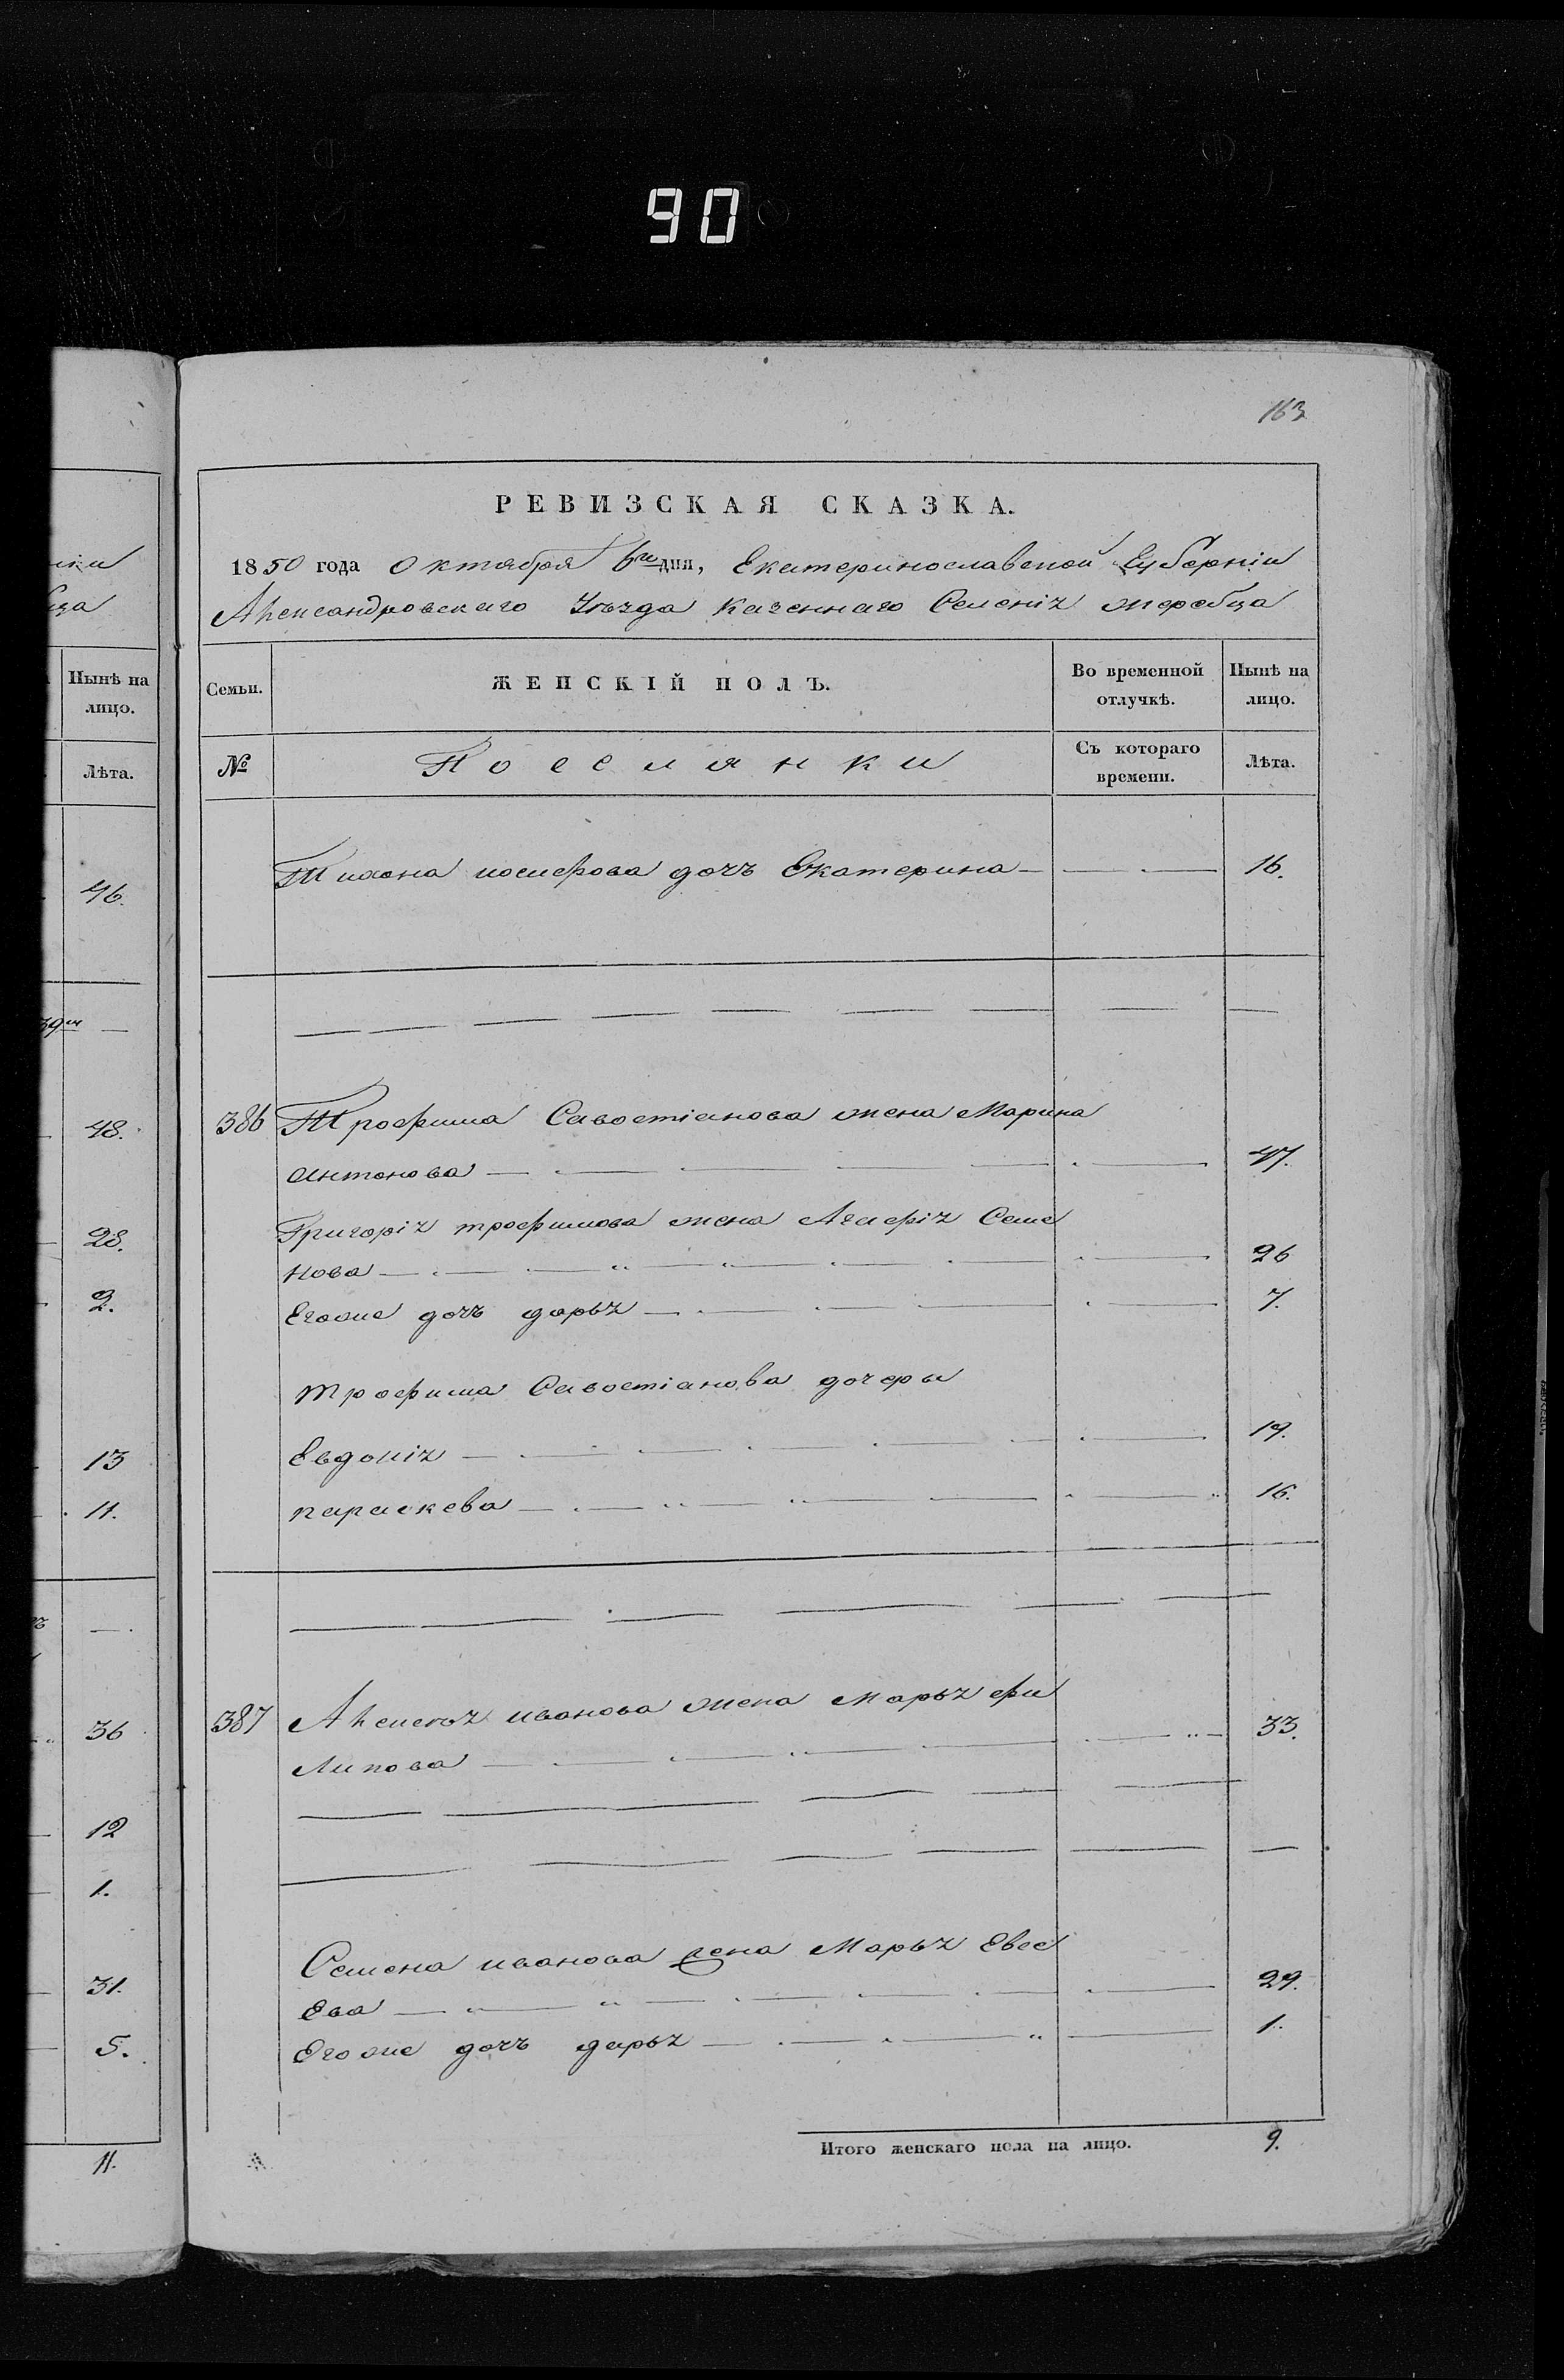 90
163
РЕВИЗСКАЯ СКАЗКА.
1850 года Октября 6го дня, Екатеринославской Губерніи
Александровскаго Уѣзда Казеннаго Селенія жеребца
Нынѣ на
лицо.
Лѣта.
46.
39го —
48.
28.
2.
13
11.
36
12
1.
31.
5.
11.
Семьи.
ЖЕНСКІЙ ПОЛЪ.
Во временной
отлучкѣ.
Нынѣ на
лицо.
№
Поселянки
Съ котораго
времени.
Лѣта.
Тихона иосифова дочь Екатерина — 16.
386 Трофима Савостіанова жена Марина
антонова — 47.
Григорія трофимова жена Агафія Семе
нова — 26
Егоже дочь дарья — 7.
трофима Савостіанова дочеры
Евдокія — 19.
параскева — 16.
387 Алексѣя иванова жена марья фи
липова — 33.
Семена иванова жена Марья Евсе
ева — 29.
Егоже дочь дарья — 1.
Итого женскаго пола на лицо. 9.